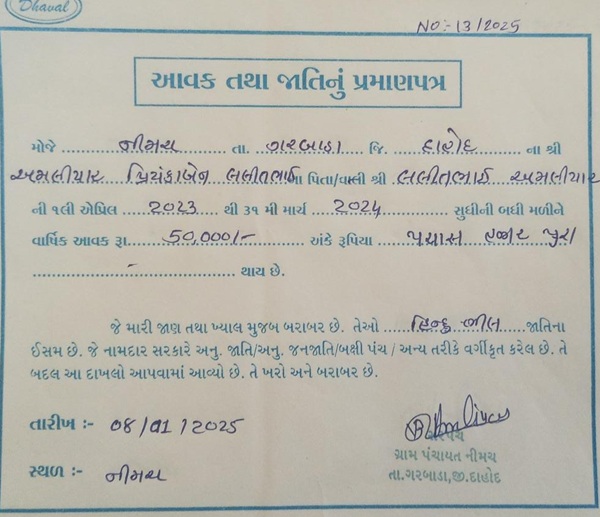 Dhaval
NO:- 13/2025
આવક તથા જાતિનું પ્રમાણપત્ર
મોજે નીમચ તા. ગરબાડા જિ. દાહોદ ના શ્રી
અમલીયાર પ્રિયંકાબેન લલીતભાઈ ના પિતા/વાલી શ્રી લલીતભાઈ અમલીયાર
ની ૧લી એપ્રિલ ૨૦૨૩ થી ૩૧ મી માર્ચ ૨૦૨૪ સુધીની બધી મળીને
વાર્ષિક આવક રૂા. 50,000/- અંકે રૂપિયા પચાસ હજાર પુરા
- થાય છે.
જે મારી જાણ તથા ખ્યાલ મુજબ બરાબર છે. તેઓ હિન્દુ ભીલ જાતિના
ઈસમ છે. જે નામદાર સરકારે અનુ. જાતિ/અનુ. જનજાતિ/બક્ષી પંચ / અન્ય તરીકે વર્ગીકૃત કરેલ છે. તે
બદલ આ દાખલો આપવામાં આવ્યો છે. તે ખરો અને બરાબર છે.
તારીખ :- 08/01/2025
સરપંચ
ગ્રામ પંચાયત નીમચ
સ્થળ :- નીમચ
તા.ગરબાડા,જી.દાહોદ